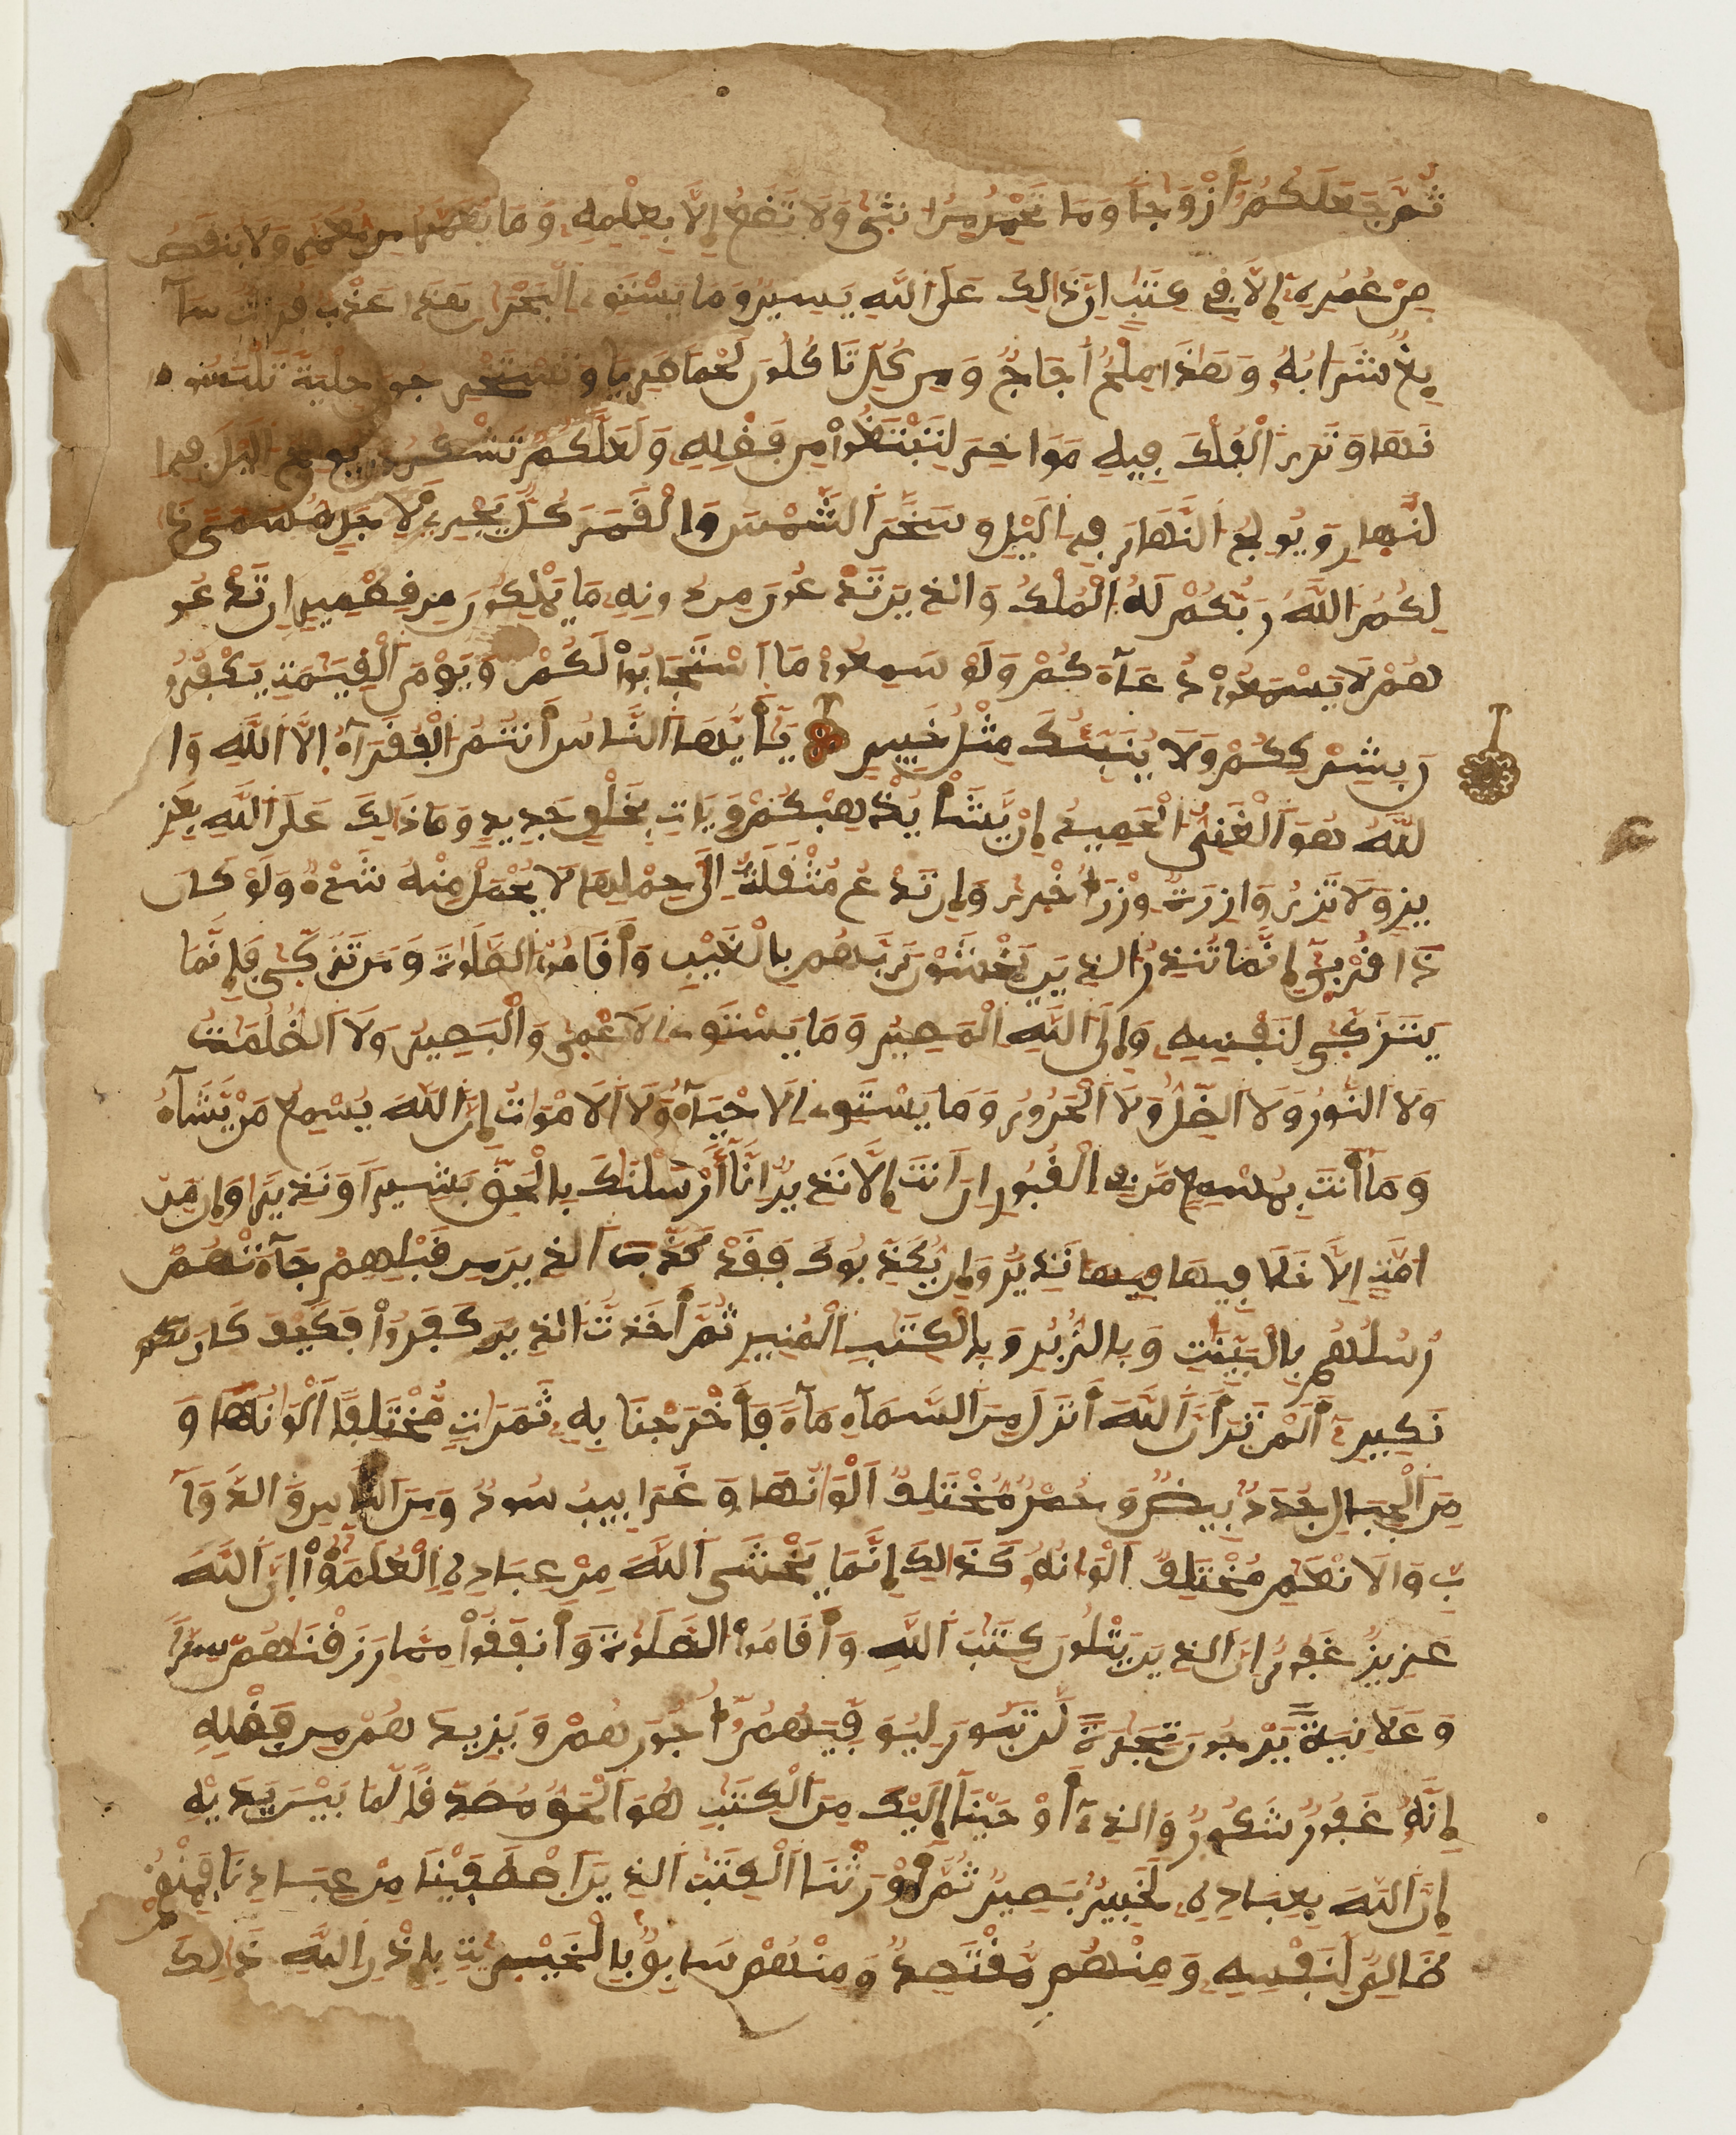 ثُمَّ جَعَلَكُمُۥٓ أَزْوَٰجًا وَمَا تَحْمِلُ مِنُ انثىٰ وَلَا تَضَعُ إِلَّا بِعِلْمِهِ وَمَا يُعَمَّرُ مِن مُّعَمَّرٍ وَلَا يُنقَصُ
مِنْ عُمُرِهِۦٓ إِلَّا فِي كِتَٰبٍ اِنَّ ذَٰلِكَ عَلَى اَللَّهِ يَسِيرٌ وَمَا يَسْتَوِے اِلْبَحْرَٰنِ هَٰذَا عَذْبٌ فُرَاتٌ سَآ
يِغٌ شَرَابُهُۥ وَهَٰذَا مِلْحٌ اُجَاجٌ وَمِن كُلٍّ تَاكُلُونَ لَحْمًا طَرِيًّا وَتَسْتَخْرِجُونَ حِلْيَةً تَلْبَسُو
نَهَا وَتَرَى اَلْفُلْكَ فِيهِ مَوَاخِرَ لِتَبْتَغُواْ مِن فَضْلِهِ وَلَعَلَّكُمْ تَشْكُرُونَ يُولِجُ اُليْلَ فِي ا
لنَّهارِ وَيُولِجُ اُلنَّهَارَ فِي اِليْلِ وَسَخَّرَ اَلشَّمْسَ وَالْقَمَرَ كُلٌّ يَجْرِے لِأَجَلٍ مُّسَمّىً ذَٰ
لِكُمُ اُللَّهُ رَبُّكُمْ لَهُ اُلْمُلْكُ وَالذِينَ تَدْعُونَ مِن دُونِهِ مَا يَمْلِكُونَ مِن قِطْمِيرٍ اِن تَدْعُو
هُمْ لَا يَسْمَعُواْ دُعَآءَكُمْ وَلَوْ سَمِعُواْ مَا اَسْتَجَابُواْ لَكُمْ وَيَوْمَ اَلْقِيَٰمَةِ يَكْفُرُو
نَ بِشِرْكِكُمْ وَلَا يُنَبِّئُكَ مِثْلُ خَبِيرٍ يَٰٓأَيُّهَا اَلنَّاسُ أَنتُمُ اُلْفُقَرَآءُ اِلَى اَللَّهِ وَا
للَّهُ هُوَ اَلْغَنِيُّ اُلْحَمِيدُ إِنْ يَّشَأْ يُذْهِبْكُمْ وَيَاتِ بِخَلْقٍ جَدِيدٍ وَمَا ذَٰلِكَ عَلَى اَللَّهِ بِعَزِ
يزٍ وَلَا تَزِرُ وَازِرَةٌ وِزْرَ أُخْرَىٰ وَإِن تَدْعُ مُثْقَلَةٌ اِلَىٰ حِمْلِهَا لَا يُحْمَلْ مِنْهُ شَےْءٌ وَلَوْ كَانَ
ذَا قُرْبىٰٓ إِنَّمَا تُنذِرُ اُلذِينَ يَخْشَوْنَ رَبَّهُم بِالْغَيْبِ وَأَقَامُواْ اُلصَّلَوٰةَ وَمَن تَزَكّىٰ فَإِنَّمَا
يَتَزَكّىٰ لِنَفْسِهِ وَإِلَى اَللَّهِ اِلْمَصِيرُ وَمَا يَسْتَوِے اِلَاعْمىٰ وَالْبَصِيرُ وَلَا اَلظُّلُمَٰتُ
وَلَا اَلنُّورُ وَلَا اَلظِّلُّ وَلَا اَلْحَرُورُ وَمَا يَسْتَوِے اِلَاحْيَآءُ وَلَا اَلَامْوَٰتُ إِنَّ اَللَّهَ يُسْمِعُ مَنْ يَّشَآءُ
وَمَآ أَنتَ بِمُسْمِعٍ مَّن فِي اِلْقُبُورِ اِنَ اَنتَ إِلَّا نَذِيرٌ اِنَّآ أَرْسَلْنَٰكَ بِالْحَقِّ بَشِيرًا وَنَذِيرًا وَإِن مِّنُ
امَّةٍ اِلَّا خَلَا فِيهَا فيها نَذِيرٌ وَإِنْ يُّكَذِّبُوكَ فَقَدْ كَذَّبَ اَلذِينَ مِن قَبْلِهِمْ جَآءَتْهُمْ
رُسُلُهُم بِالْبَيِّنَٰتِ وَبِالزُّبُرِ وَبِالْكِتَٰبِ اِلْمُنِيرِ ثُمَّ أَخَذتُّ اُلذِينَ كَفَرُواْ فَكَيْفَ كَانَ
نَكِيرِۦٓ أَلَمْ تَرَ أَنَّ اَللَّهَ أَنزَلَ مِنَ اَلسَّمَآءِ مَآءً فَأَخْرَجْنَا بِهِ ثَمَرَٰتٍ مُّخْتَلِفًا اَلْوَٰنُهَا وَ
مِنَ اَلْجِبَالِ جُدَدٌ بِيضٌ وَحُمْرٌ مُّخْتَلِفٌ اَلْوَٰنُهَا وَغَرَابِيبُ سُودٌ وَمِنَ اَلنَّاسِ وَالدَّوَآ
بِّ وَالَانْعَٰمِ مُخْتَلِفٌ اَلْوَٰنُهُۥ كَذَٰلِكَ إِنَّمَا يَخْشَى اَللَّهَ مِنْ عِبَادِهِ اِلْعُلَمَٰٓؤُاْ اِنَّ اَللَّهَ
عَزِيزٌ غَفُورٌ اِنَّ اَلذِينَ يَتْلُونَ كِتَٰبَ اَللَّهِ وَأَقَامُواْ اُلصَّلَوٰةَ وَأَنفَقُواْ مِمَّا رَزَقْنَٰهُمْ سِرًّا
وَعَلَانِيَةً يَرْجُونَ تِجَٰرَةً لَّن تَبُورَ لِيُوَفِّيَهُمُۥٓ أُجُورَهُمْ وَيَزِيدَهُمْ مِن فَضْلِهِ
إِنَّهُ غَفُورٌ شَكُورٌ وَالذِےٓ أَوْحَيْنَآ إِلَيْكَ مِنَ اَلْكِتَٰبِ هُوَ اَلْحَقُّ مُصَدِّقًا لِّمَا بَيْنَ يَدَيْهِ
إِنَّ اَللَّهَ بِعِبَادِهِ لَخَبِيرٌ بَصِيرٌ ثُمَّ أَوْرَثْنَا اَلْكِتَٰبَ اَلذِينَ اَصْطَفَيْنَا مِنْ عِبَادِنَا فَمِنْهُمْ
ظَالِمٌ لِّنَفْسِهِ وَمِنْهُم مُّقْتَصِدٌ وَمِنْهُمْ سَابِقٌ بِالْخَيْرَٰتِ بِإِذْنِ اِللَّهِ ذَٰلِكَ